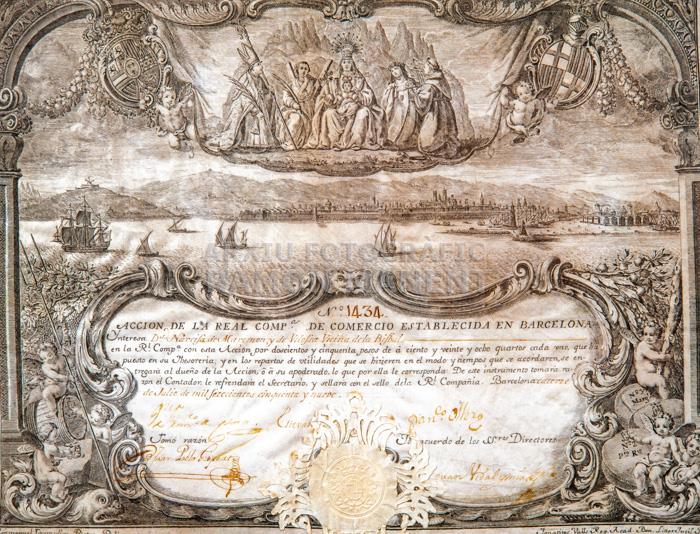 ARXIU FOTOGRÀFIC
RAMON MANENT
N.º 1434.
ACCION, DE LA REAL COMP.ª DE COMERCIO ESTABLECIDA EN BARCELONA
Y Interesa D.ª Narcisa de
en la R.l Comp.ª con esta Accion por doscientos y cinquenta pesos de á ciento y veinte y ocho quartos cada uno, que ha
puesto en su Thesoreria, y en los repartos de utilidades que se hizieren en el modo y tiempos que se acordaren, se en-
tregará al dueño de la Accion, ó á su apoderado, lo que por ella le corresponda: De este instrumento tomará ra-
zon el Contador, le refrendará el Secretario, y sellará con el sello de la R.l Compañia. Barcelona catorze
de Julio de mil setecientos cinquenta y nueve.
Tomó razón
Por acuerdo de los S.res Directores
Juan Pablo
Juan Vidal
Ignacius Valls